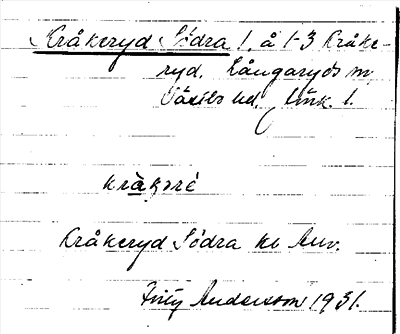 Kråkeryd Södra 1. å 1-3 Kråke-
ryd. Långaryds sn,
Västbo hd. Jönk. l.
kràkəré
Kråkeryd Södra
Andersson 1931.